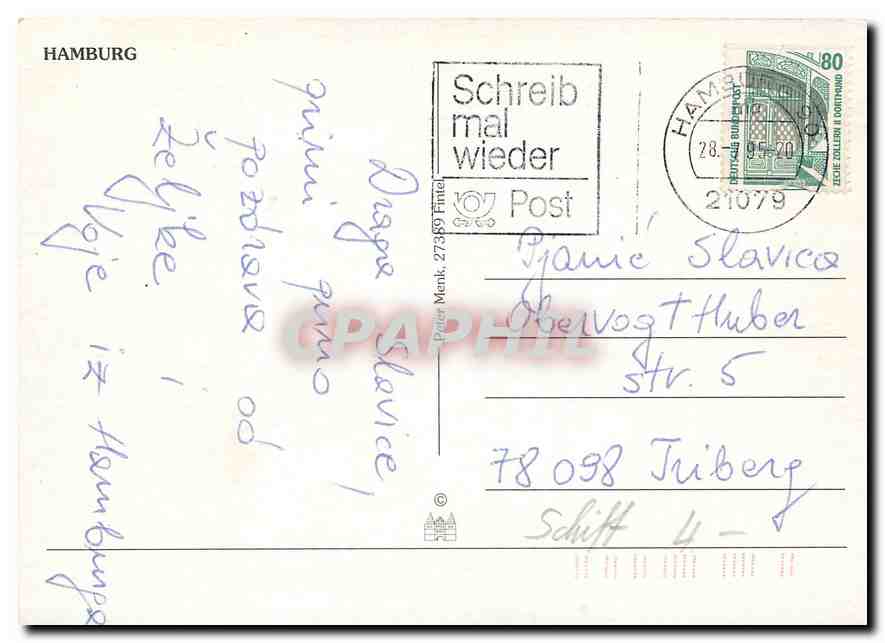 HAMBURG
Schreib
mal
wieder
Post
HAMBURG
28.-7.95-20
21079
80
DEUTSCHE BUNDESPOST
ZECHE ZOLLERN II DORTMUND
Draga Slavice,
primi puno
pozdrava od
Željke i
Moje iz Hamburga
Peter Menk, 27389 Fintel
©
CPAPHIL
Pjanić Slavica
Obervogt Huber
str. 5
78098 Triberg
Schiff 4-